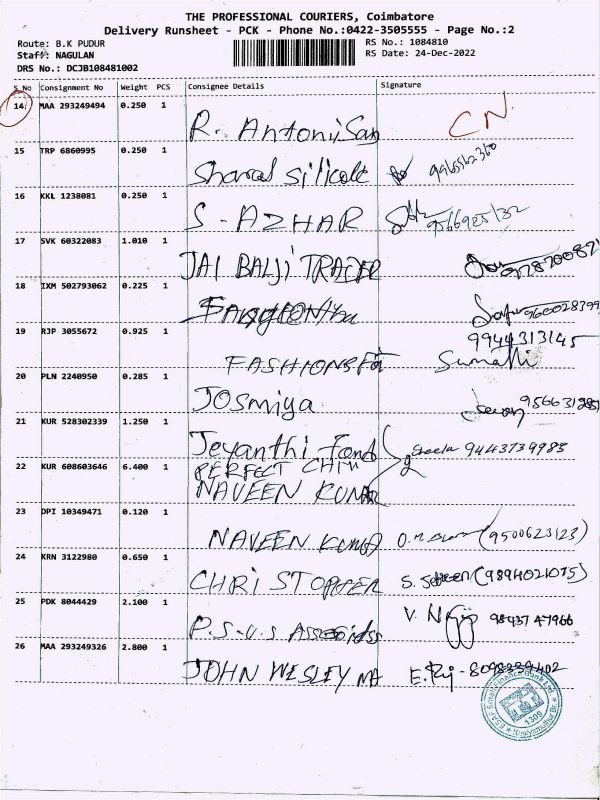 THE PROFESSIONAL COURIERS, Coimbatore
Delivery Runsheet - PCK - Phone No.:0422-3505555 - Page No.:2
Route: B.K PUDUR
RS No.: 1084810
Staff: NAGULAN
RS Date: 24-Dec-2022
DRS No.: DCJB108481002
S No Consignment No Weight PCS Consignee Details Signature
14 MAA 293249494 0.250 1
R. Antony CN
15 TRP 6860995 0.250 1
Sharad silicate 9965562360
16 KKL 1238081 0.250 1
S - AZHAR 9566925132
17 SVK 60322083 1.010 1
JAI BALJI TRADER
18 IXM 502793062 0.225 1
19 RJP 3055672 0.925 1
9944313145
FASHIONS Sumathi
20 PLN 2240950 0.285 1
Josmiya
21 KUR 528302339 1.250 1
Jeyanthi 9443739983
22 KUR 608603646 6.400 1
PERFECT
NAVEEN KUMAR
23 DPI 10349471 0.120 1
NAVEEN KUMAR (9500623123)
24 KRN 3122980 0.650 1
CHRISTOPHER (9894021075)
25 PDK 8044429 2.100 1
P.S.V.S 98437 47966
26 MAA 293249326 2.800 1
JOHN WESLEY MA 8098339402
ESAF Small Finance Bank Ltd.
1309